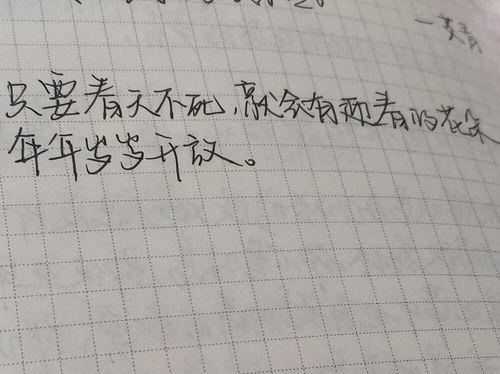 只要春天不死,就会有迎春的花朵
年年岁岁开放。